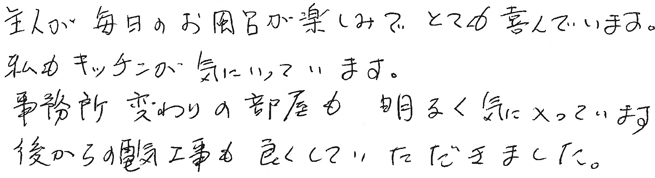 主人が毎日のお風呂が楽しみで とても喜んでいます。
私もキッチンが気にいっています。
事務所変わりの部屋も 明るく気に入っています
後からの電気工事も良くしていただきました。